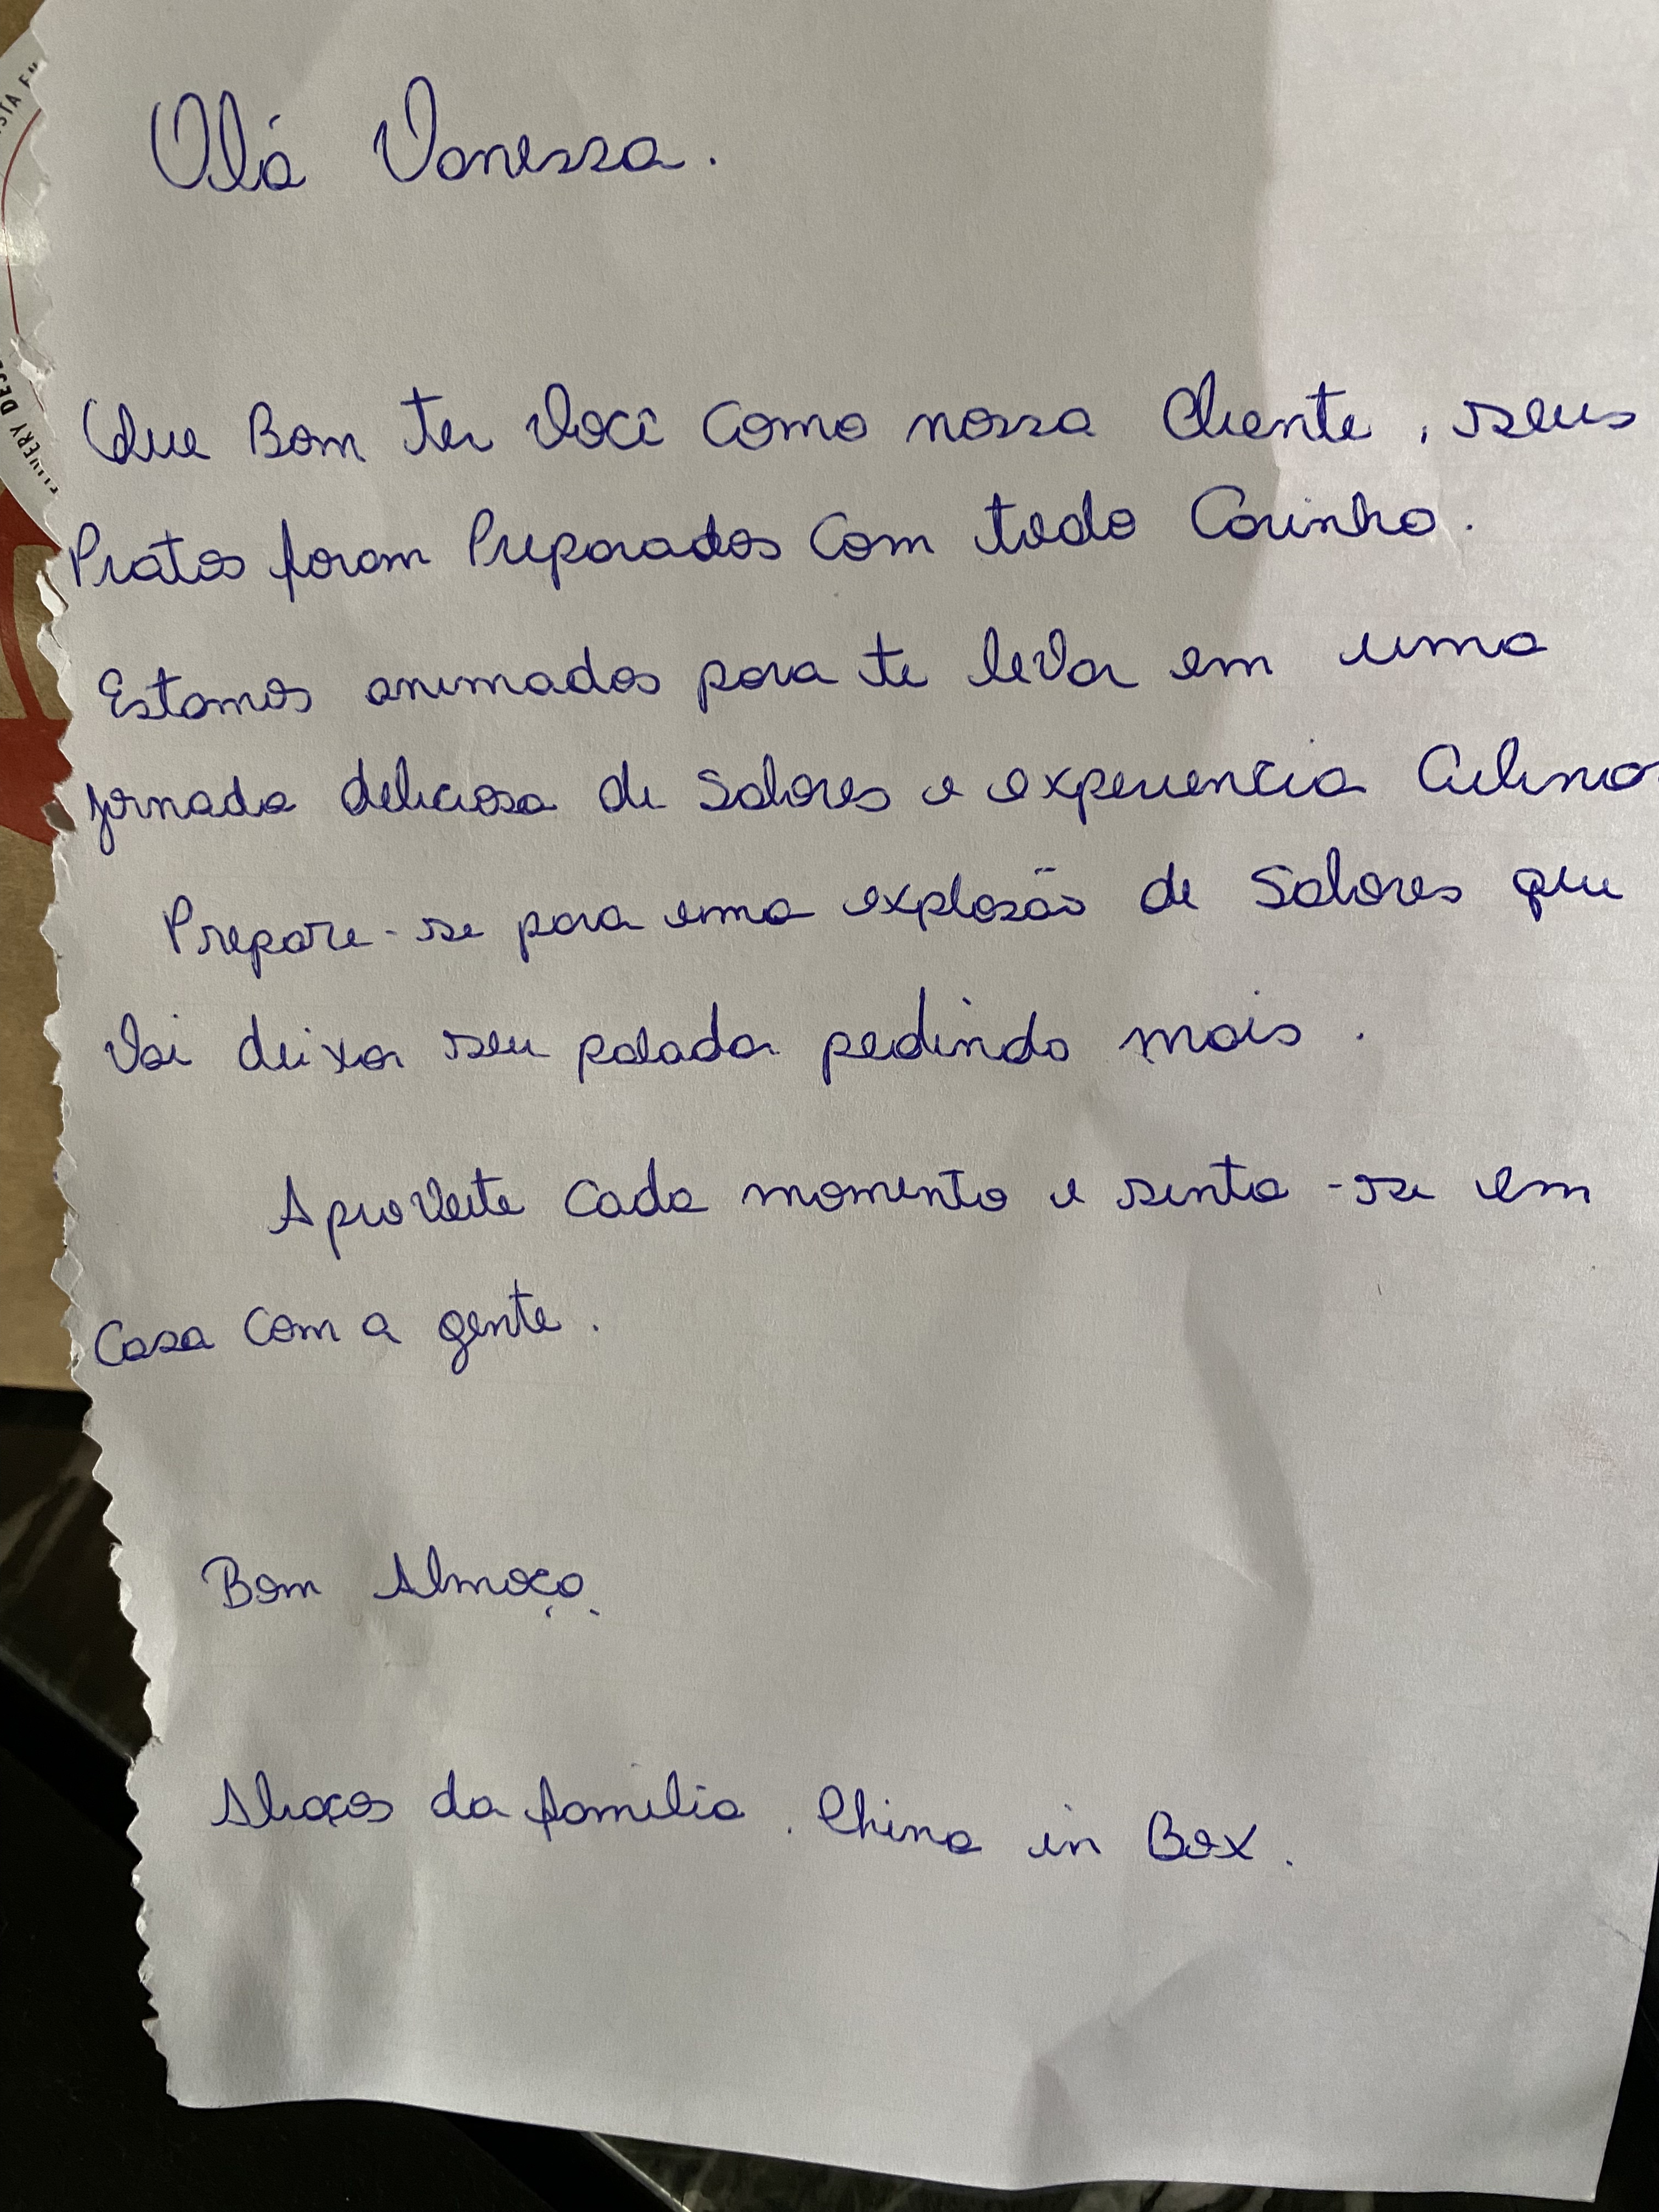 Olá Vanessa.
Que Bom ter você como nossa Cliente, seus
Pratos foram Preparados Com todo Carinho.
Estamos animados para te levar em uma
jornada deliciosa de Sabores e experiencia Culina
Prepare-se para uma explosão de Sabores que
Vai deixar seu paladar pedindo mais.
Aproveite cada momento e sinta-se em
Casa com a gente.
Bom Almoço.
Abraços da família. China in Box.